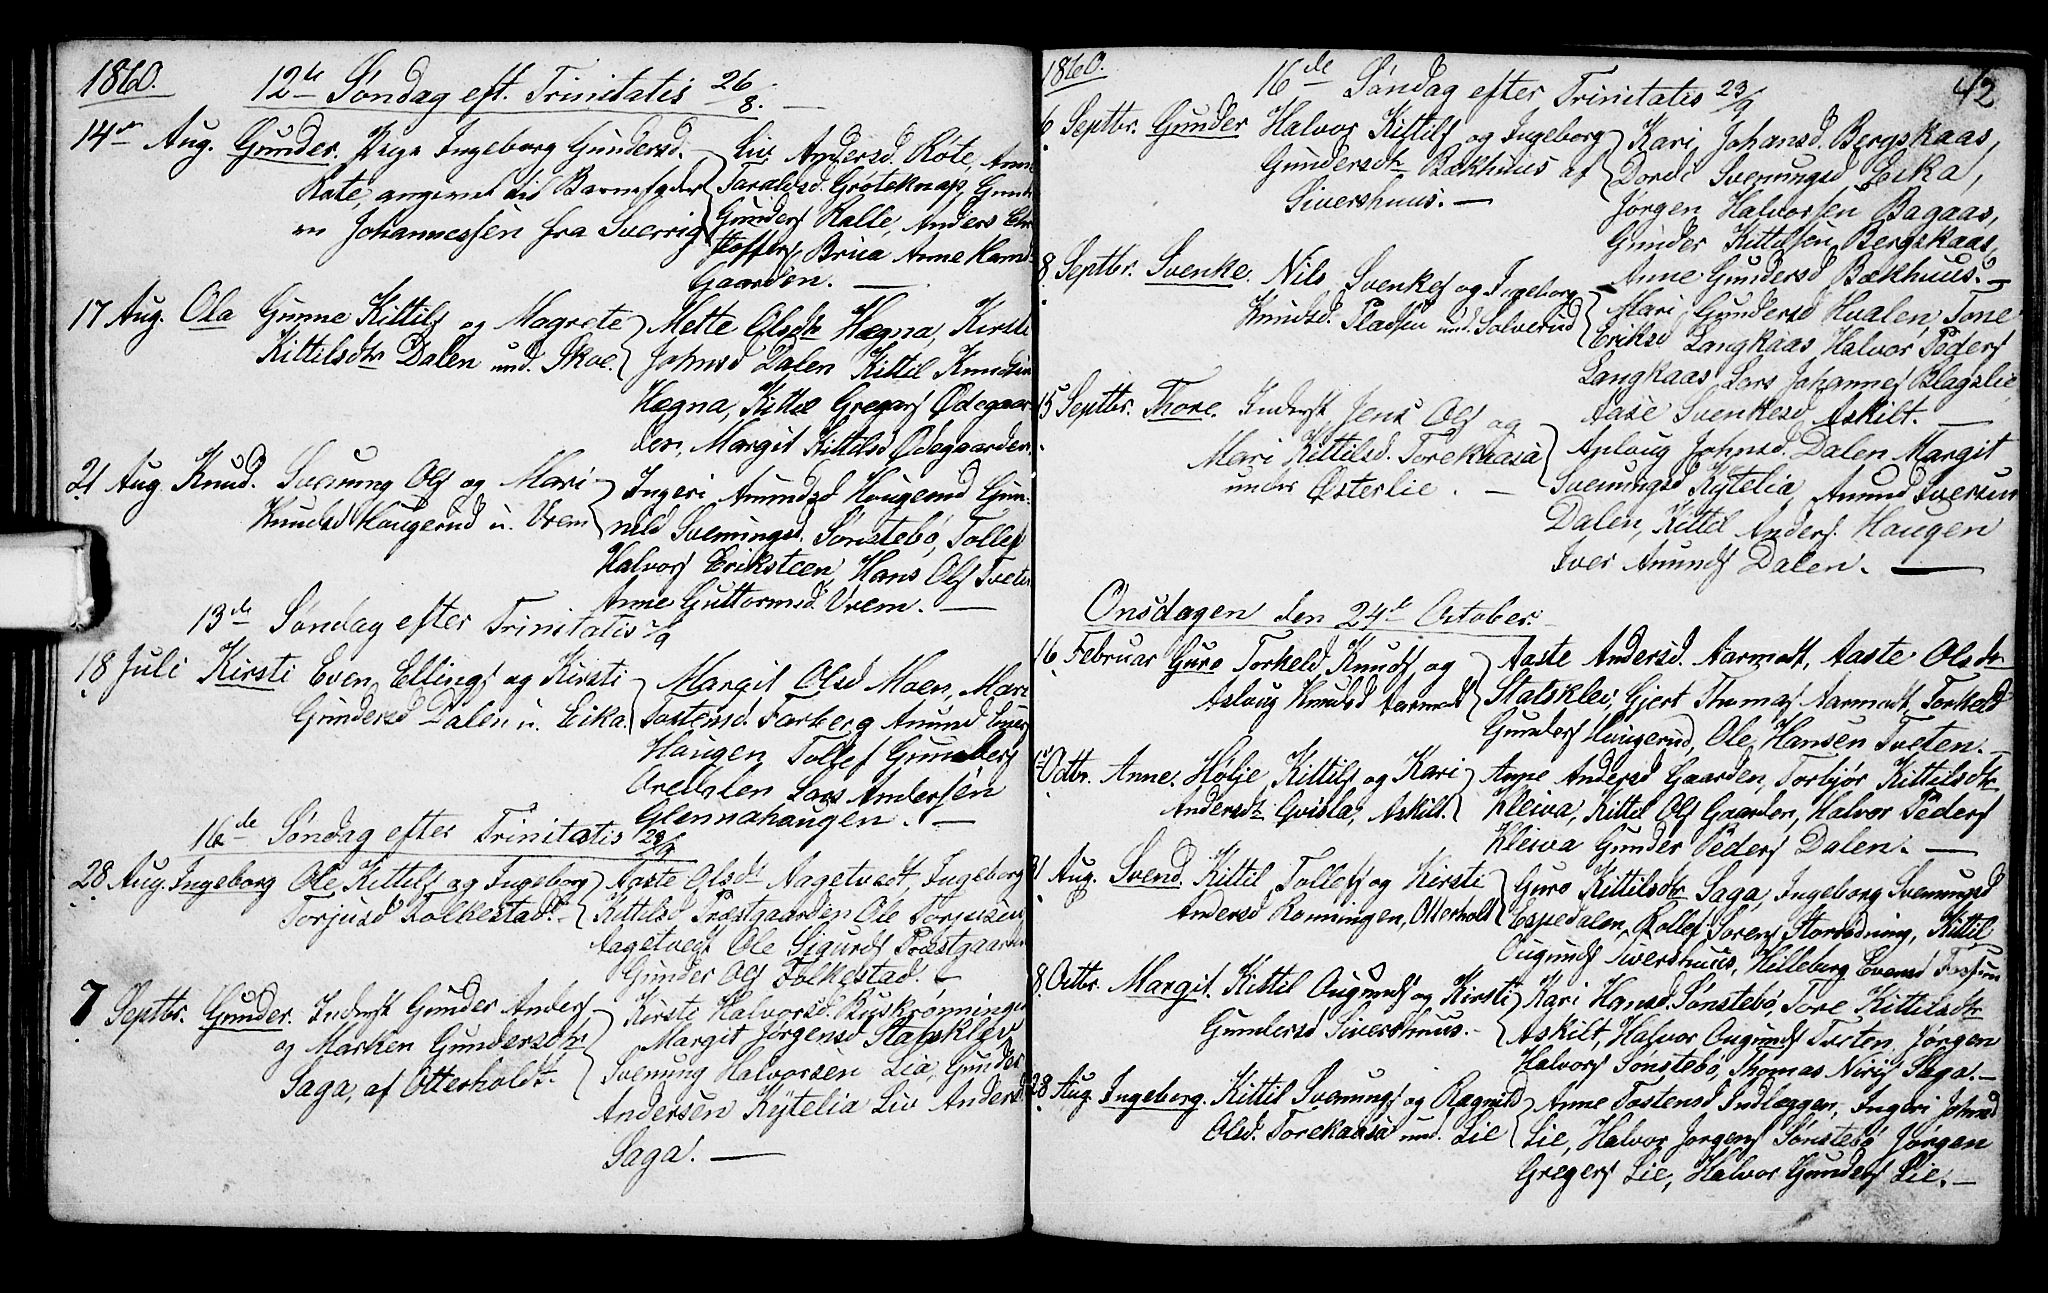 1860.
12te Søndag eft. Trinitatis 26/8.
14de Aug. Gunder. Pige Ingeborg Gundersd.
Rote, angivet til Barnefader
en Johannessen fra Sverrig
Liv Andersd. Rote, Anne
Taraldsd. Grøteknap, Gunder
Gunders Kalle, Anders
Brua Anne
Gaarden. —
17 Aug. Ola Gunne Kittils og Magrete
Kittilsdtr Dalen und. Skoe.
Mette Olsdtr Hægna, Kirsti
Johnsd Dalen Kittil Knudsen
Hægna, Kittil Gregers Ødegaar-
den, Margit Kittilsd Ødegaarden.
21 Aug Knud. Svenung Ols og Mari
Knudsd Haugerud u. Vrem
Ingeri Amundsd Haugerud Gun-
nild Svenungsd. Sønstebø, Tollef
Halvors Eriksteen, Hans Ols Tveten
Anne Guttormsd. Vrem. —
13de Søndag efter Trinitatis 2/9
18 Juli Kirsti Even Ellings og Kirsti
Gundersd Dalen u. Eika.
Margit Olsd Moen, Mari
Tostensd. Farberg Amund
Haugen, Tollef Gunders
Aredalen Lars Andersen
Glennahaugen. —
16de Søndag efter Trinitatis 23/9
28 Aug. Ingeborg Ole Kittils og Ingeborg
Torjusd Folkestad. —
Aaste Olsdtr Nagetvedt, Ingeborg
Kittilsd Præstgaarden Ole Torjussen
Ole Sigurds Præstgaarden
Gunder Ols Folkestad. —
7 Septbr. Gunder. Inderst Gunder Anders
og Marken Gundersdtr
Saga, af Otterholdt.
Kirsti Halvorsd. Buskrønningen
Margit Jørgensd Statsklev
Svenung Halvorsen Lia, Gunder
Andersen Kytelia Liv Andersd
Saga. —
1860.
42
16de Søndag efter Trinitatis 23/9
6 Septbr. Gunder Halvor Kittils og Ingeborg
Gundersdtr Bækhuus af
Sivershuus. —
Kari Johansd. Bergskaas,
Dordi Svenungsd Eika,
Jørgen Halvorsen Bagaas,
Gunder Kittilsen Bergskaas,
Anne Gundersd Bækhuus. —
8 Septbr. Svenke. Nils Svenkes og Ingeborg
Knudsd. Pladsen und. Solverud
Mari Gundersd Hvalen Tone
Eriksd Langkaas Halvor Peders
Langkaas Lars Johannes Blagslie
Aase Svenkesd Askilt. —
15 Septbr. Thore. Inderst Jens Ols og
Mari Kittilsd. Torekaasa
under Østerlie. —
Aslaug Johnsd. Dalen Margit
Svenungsd Kytelia Amund Iversen
Dalen, Kittil Anders Haugen
Iver Amunds Dalen. —
Onsdagen den 24de October.
16 Februar Guro Torkeld Knuds og
Aslaug Knudsd Aarmodt
Aaste Andersd. Aarmodt, Aaste Olsdtr
Statsklev, Gjert Thomas Aarmodt, Torkeld
Gunders Haugerud, Ole Hansen Tveten. —
Octbr. Anne. Hølje Kittils og Kari
Andersdtr Qvisla, Askilt.
Anne Andersd Gaarden, Torbjør Kittilsdtr
Kleiva, Kittil Ols Gaarden, Halvor Peders
Kleiva Gunder Peders Dalen. —
Aug. Svend. Kittil Tollefs og Kirsti
Andersd Rønningen, Otterholt
Guro Kittilsdtr Saga, Ingeborg Svenungsd
Espedalen, Rollef Sørens Storrødning, Kittil
Ougunds Sivershuus, Hilleborg Evensd Fossum
8 Octbr. Margit. Kittil Ougunds og Kirsti
Gundersd Sivershuus. —
Kari Hansd. Sønstebø, Tore Kittilsdtr
Askilt, Halvor Ougunds Tveten, Jørgen
Halvors Sønstebø, Thomas Niris Saga. —
28 Aug. Ingeborg. Kittil Svenungs og Ragnild
Olsd. Torekaasa und. Lie
Anne Tostensd Indlæggen, Ingeri Johnsd
Lie, Halvor Jørgens Sønstebø Jørgen
Gregers Lie, Halvor Gunders Lie. —